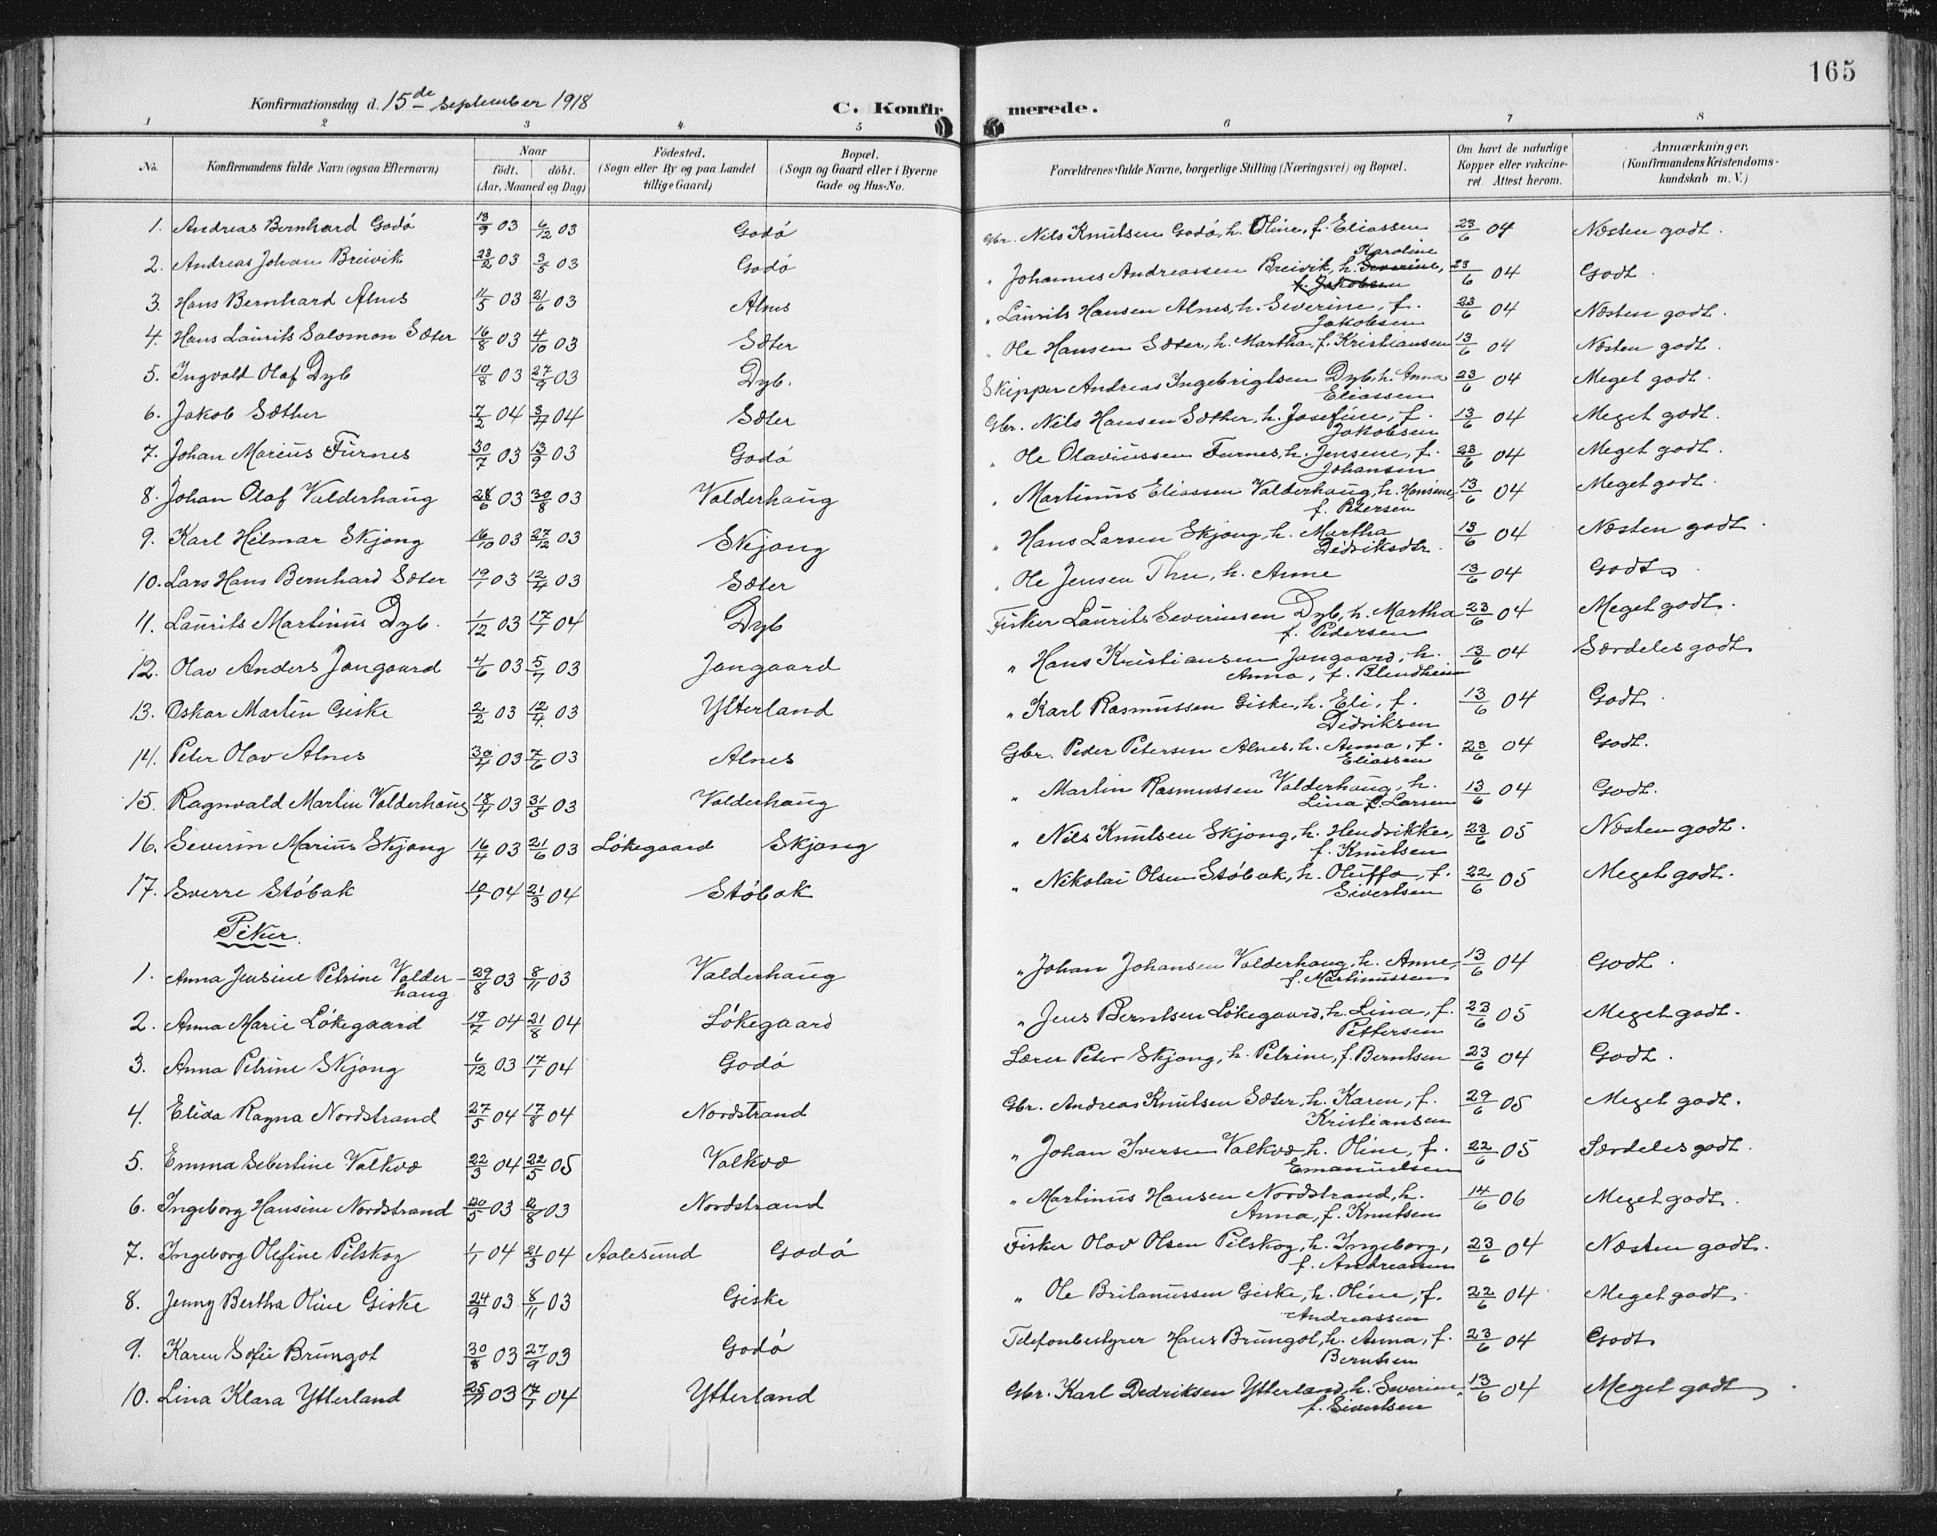 165
Konfirmationsdag d. 15de September 1918 C. Konfirmerede.
1 2 3 4 5 6 7 8
No. Konfirmandens fulde Navn (ogsaa Efternavn) Naar født. døbt. (Aar, Maaned og Dag) Fødested. (Sogn eller By og paa Landet tillige Gaard) Bopæl. (Sogn og Gaard eller i Byerne Gade og Hus-No. Forældrenes fulde Navne, borgerlige Stilling (Næringsvei) og Bopæl. Om havt de naturlige Kopper eller vakcineret. Attest herom. Anmærkninger. (Konfirmandens Kristendomskundskab m. V.)
1. Andreas Bernhard Godø 13/9 03 6/12 03 Godø Gbr. Nils Knutsen Godø, h. Oline, f. Eliassen 23/6 04 Næsten godt.
2. Andreas Johan Breivik 23/2 03 3/5 03 Godø " Johannes Andreassen Breivik, h. Severine, Karoline f. Jakobsen 23/6 04 Godt.
3. Hans Bernhard Alnes 11/5 03 21/6 03 Alnes " Laurits Hansen Alnes, h. Severine, f. Jakobsen 23/6 04 Næsten godt.
4. Hans Laurits Salomon Sæter 16/8 03 4/10 03 Sæter " Ole Hansen Sæter, h. Martha, f. Kristiansen 13/6 04 Næsten godt.
5. Ingvald Olaf Dyb 10/8 03 27/9 03 Dyb. Skipper Andreas Ingebrigtsen Dyb, h. Anna Eliassen 23/6 04 Meget godt.
6. Jakob Sæther 7/2 04 3/4 04 Sæter Gbr. Nils Hansen Sæther, h. Josefine, f. Jakobsen 13/6 04 Meget godt.
7. Johan Marius Furnes 30/7 03 13/9 03 Godø " Ole Olaviussen Furnes, h. Jensene, f. Johansen 23/6 04 Meget godt.
8. Johan Olaf Valderhaug 28/6 03 30/8 03 Valderhaug " Martinus Eliassen Valderhaug, h. Hansine, f. Petersen 13/6 04 Meget godt.
9. Karl Hilmar Skjong 16/10 03 27/12 03 Skjong " Hans Larsen Skjong, h. Martha Didriksdtr. 13/6 04 Næsten godt.
10. Lars Hans Bernhard Sæter 19/1 03 12/4 03 Sæter " Ole Jensen Thu, h. Anne 13/6 04 Godt
11. Laurits Martinus Dyb. 1/12 03 17/1 04 Dyb Fisker Laurits Severinsen Dyb, h. Martha f. Pedersen 23/6 04 Meget godt.
12. Olav Anders Jangaard 4/6 03 5/7 03 Jangaard " Hans Kristiansen Jangaard, h. Anna, f. Blindheim 13/6 04 Særdeles godt
13. Oskar Martin Giske 2/2 03 12/4 03 Ytterland " Karl Rasmussen Giske, h. Eli, f. Didriksen 13/6 04 Godt.
14. Peter Olav Alnes 30/4 03 7/6 03 Alnes Gbr. Peder Petersen Alnes, h. Anna, f. Eliassen 23/6 04 Godt.
15. Ragnvald Martin Valderhaug 18/4 03 31/5 03 Valderhaug " Martin Rasmussen Valderhaug, h. Lina f. Larsen 13/6 04 Godt.
16. Severin Marius Skjong 16/4 03 21/6 03 Løkegaard Skjong " Nils Knutsen Skjong, h. Hendrikke, f. Knutsen 23/6 05 Næsten godt.
17. Sverre Støbak 10/1 04 21/3 04 Støbak " Nikolai Olsen Støbak, h. Oluffa, f. Sivertsen 22/6 05 Meget godt.
Piker.
1. Anna Jensine Petrine Valderhaug 29/8 03 8/11 03 Valderhaug " Johan Johansen Valderhaug, h. Anne, f. Martinussen 13/6 04 Godt.
2. Anna Marie Løkegaard 19/7 04 21/8 04 Løkegaard " Jens Berntsen Løkegaard, h. Lina, f. Pettersen 23/6 05 Meget godt.
3. Anna Petrine Skjong 6/12 03 17/1 04 Godø Lærer Peter Skjong, h. Petrine, f. Berntsen 23/6 04 Godt.
4. Elida Ragna Nordstrand 27/5 04 17/8 04 Nordstrand Gbr. Andreas Knutsen Sæter, h. Karen, f. Kristiansen 29/6 05 Meget godt.
5. Emma Sebertine Valkvæ 22/3 04 22/5 05 Valkvæ " Johan Iversen Valkvæ, h. Oline, f. Emanuelsen 22/6 05 Særdeles godt.
6. Ingeborg Hansine Nordstrand 20/5 03 2/8 03 Nordstrand " Martinus Hansen Nordstrand, h. Anna, f. Knutsen 14/6 06 Meget godt.
7. Ingeborg Olefine Pilskog 1/1 04 21/3 04 Aalesund Godø Fisker Olav Olsen Pilskog, h. Ingeborg, f. Andreassen 23/6 04 Næsten godt.
8. Jenny Bertha Oline Giske 24/9 03 8/11 03 Giske " Ole Britanussen Giske, h. Oline, f. Andreassen 22/6 04 Meget godt.
9. Karen Sofie Brungot 30/8 03 27/9 03 Godø Telefonbestyrer Hans Brungot, h. Anna, f. Berntsen 23/6 04 Godt
10. Lina Klara Ytterland 25/11 03 17/1 04 Ytterland Gbr. Karl Dedriksen Ytterland, h. Severine, f. Sivertsen 13/6 04 Meget godt